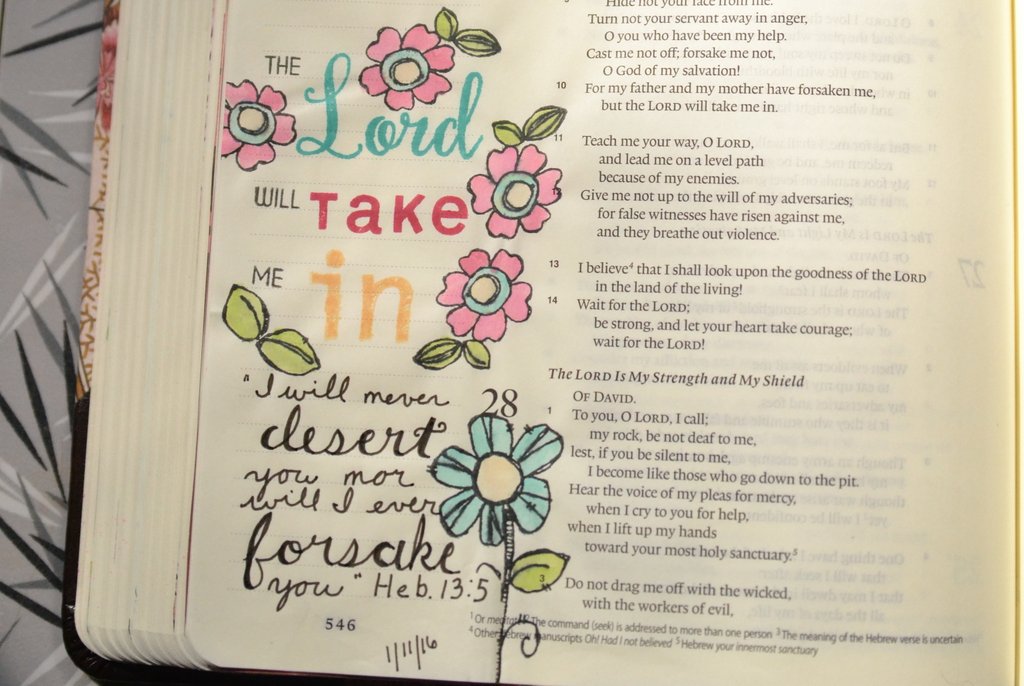 THE
Lord
WILL TAKE
ME in
"I will never
desert
you nor
will I ever
forsake
you" Heb. 13:5
546
1/11/16
Hide not your face from me.
Turn not your servant away in anger,
O you who have been my help.
Cast me not off; forsake me not,
O God of my salvation!
10 For my father and my mother have forsaken me,
but the LORD will take me in.
11 Teach me your way, O LORD,
and lead me on a level path
because of my enemies.
12 Give me not up to the will of my adversaries;
for false witnesses have risen against me,
and they breathe out violence.
13 I believe4 that I shall look upon the goodness of the LORD
in the land of the living!
14 Wait for the LORD;
be strong, and let your heart take courage;
wait for the LORD!
The LORD Is My Strength and My Shield
28 OF DAVID.
1 To you, O LORD, I call;
my rock, be not deaf to me,
lest, if you be silent to me,
I become like those who go down to the pit.
Hear the voice of my pleas for mercy,
when I cry to you for help,
when I lift up my hands
toward your most holy sanctuary.5
3 Do not drag me off with the wicked,
with the workers of evil,
1 Or The command (seek) is addressed to more than one person 3 The meaning of the Hebrew verse is uncertain
4 Other Hebrew manuscripts Oh! Had I not believed 5 Hebrew your innermost sanctuary